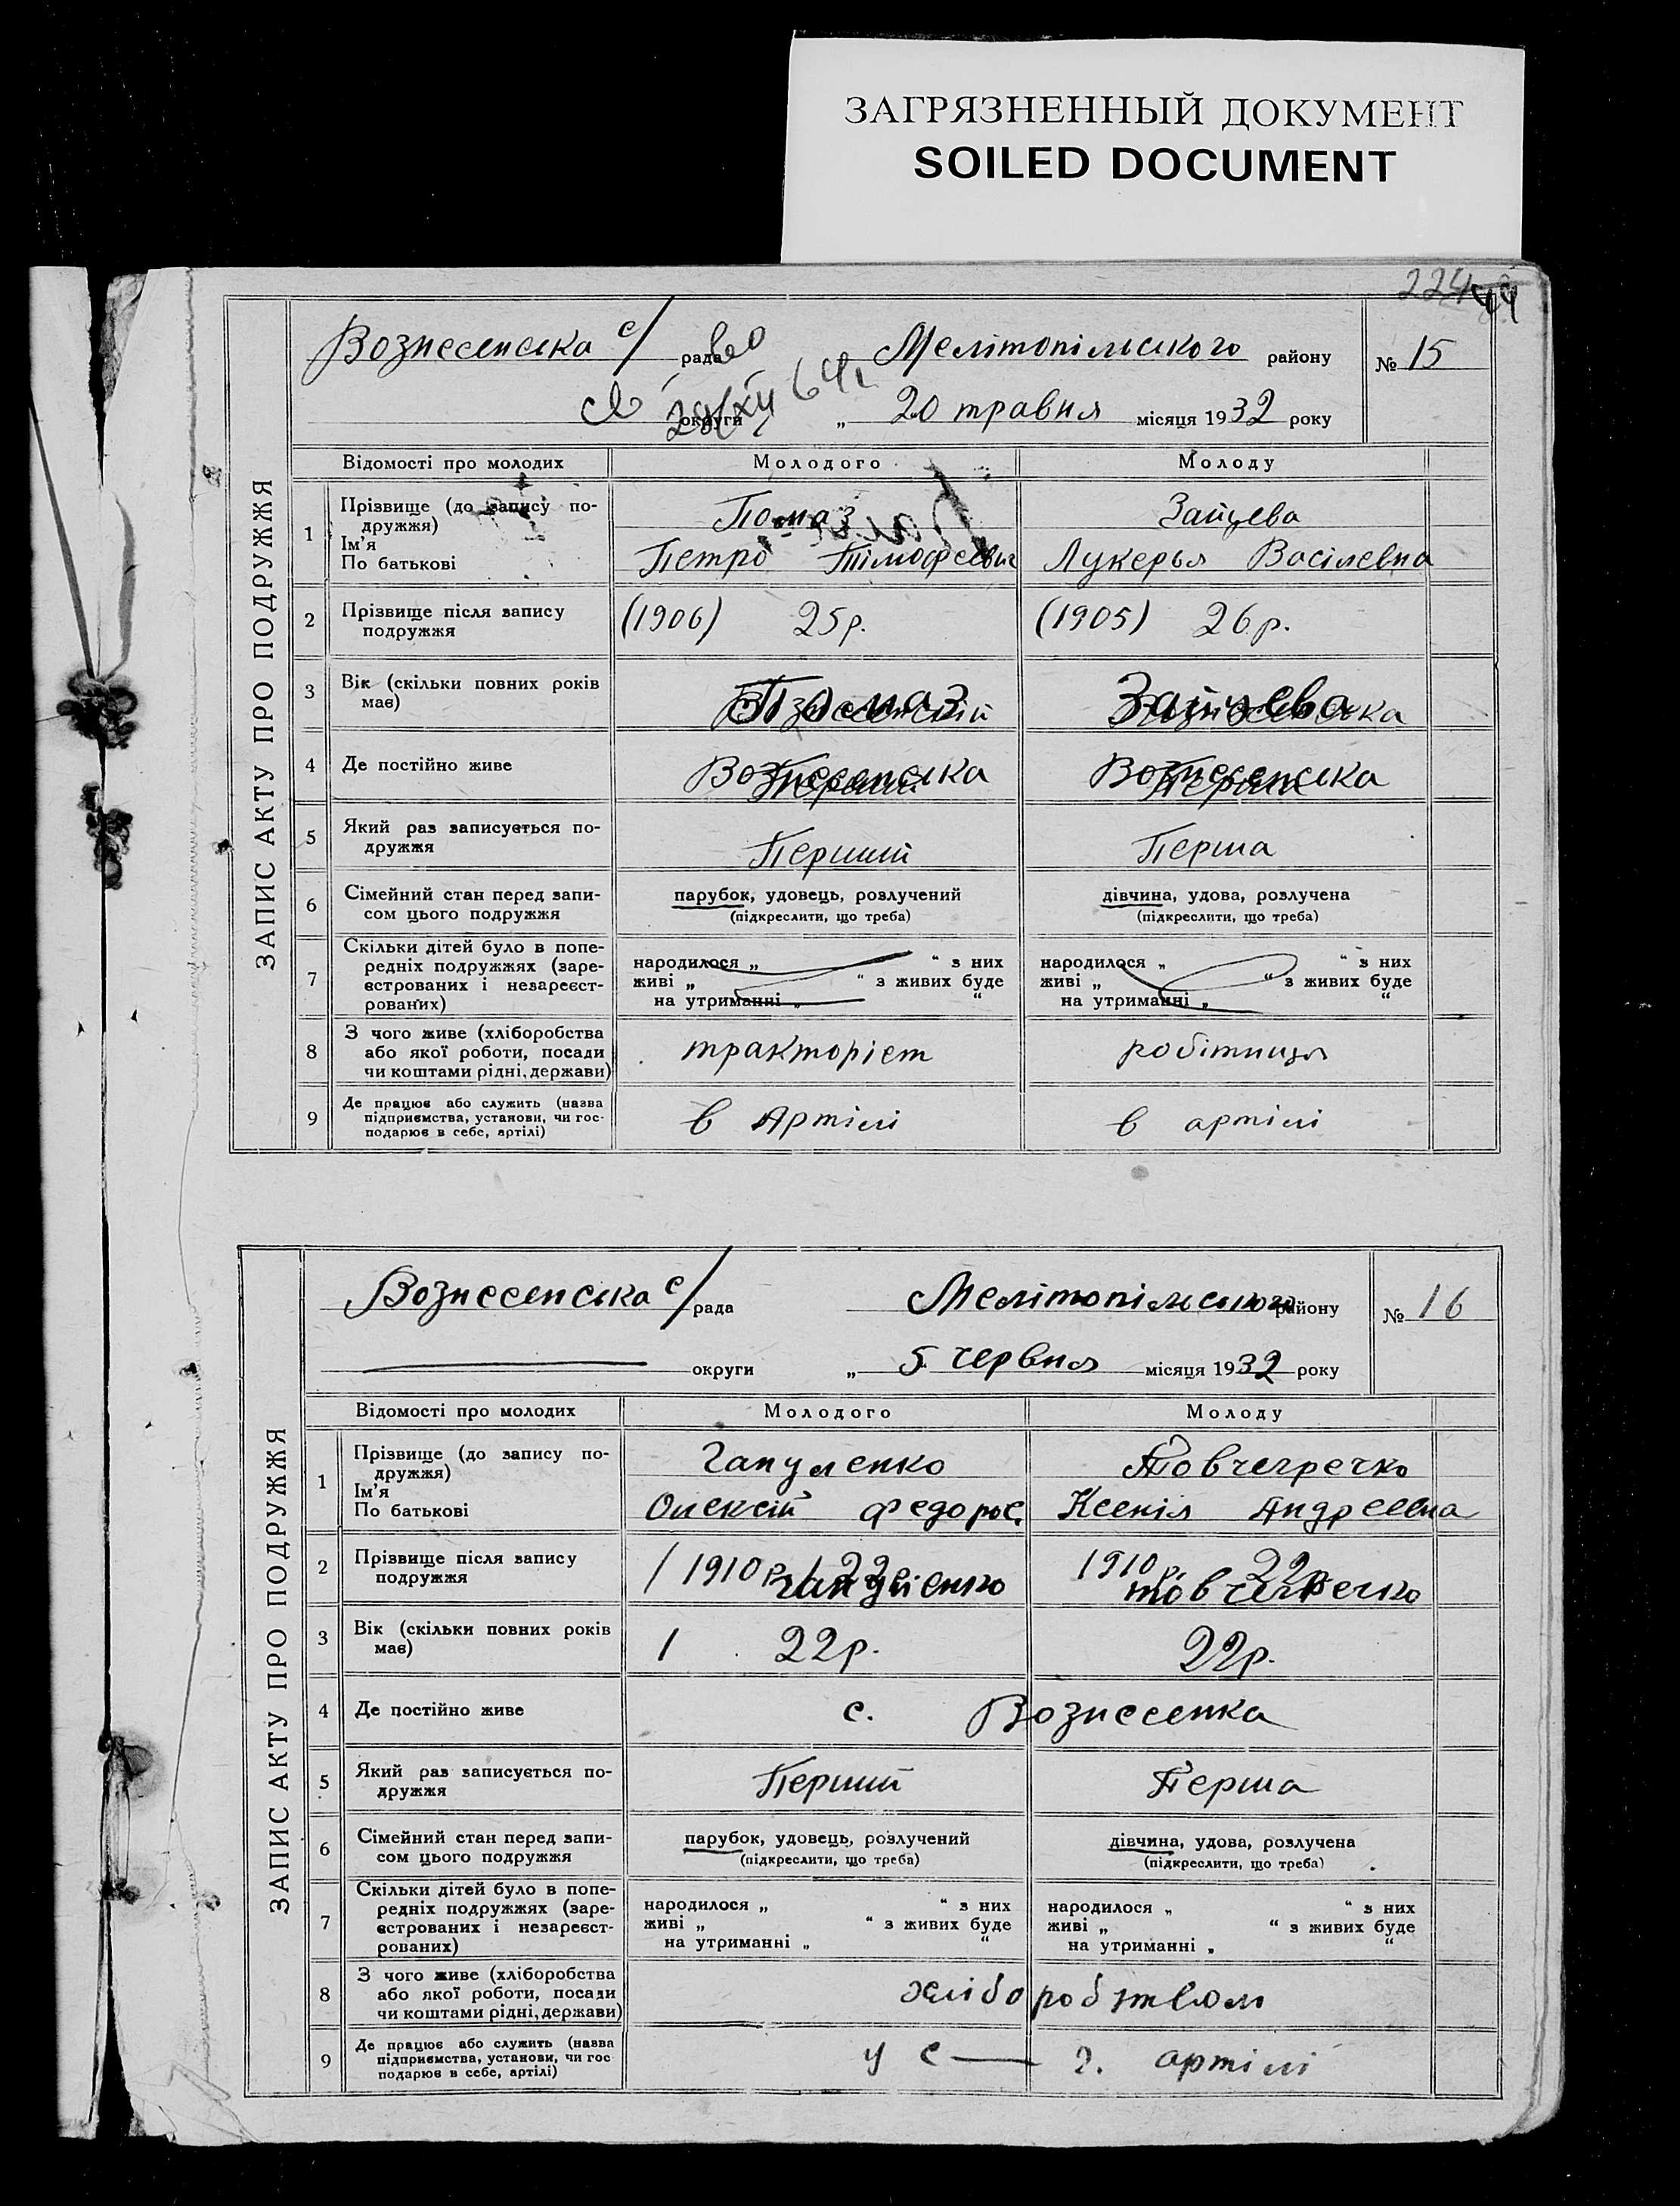 ЗАГРЯЗНЕННЫЙ ДОКУМЕНТ
SOILED DOCUMENT
224
ЗАПИС АКТУ ПРО ПОДРУЖЖЯ
Вознесенська с/рада Мелітопільського району № 15
округи „ 20 травня місяця 1932 року
Відомості про молодих Молодого Молоду
1 Прізвище (до запису по-
дружжя)
Ім’я
По батькові
Помаз Зайцева
Петро Тімофеевич Лукерья Васілевна
2 Прізвище після запису
подружжя
(1906) 25р. (1905) 26р.
3 Вік (скільки повних років
має)
Помаз Зайцева
4 Де постійно живе Вознесенська Вознесенська
5 Який раз записується по-
дружжя
Перший Перша
6 Сімейний стан перед запи-
сом цього подружжя
парубок, удовець, розлучений дівчина, удова, розлучена
(підкреслити, що треба) (підкреслити, що треба)
7 Скільки дітей було в попе-
редніх подружжях (заре-
єстрованих і незареєст-
рованих)
народилося „ “ з них народилося „ “ з них
живі „ “ з живих буде живі „ “ з живих буде
на утриманні „ “ на утриманні „ “
8 З чого живе (хліборобства
або якої роботи, посади
чи коштами рідні, держави)
тракторіст робітниця
9 Де працює або служить (назва
підприємства, установи, чи гос-
подарює в себе, артілі)
в Артілі в артілі
ЗАПИС АКТУ ПРО ПОДРУЖЖЯ
Вознесенська с/рада Мелітопільського району № 16
округи „ 5 червня місяця 1932 року
Відомості про молодих Молодого Молоду
1 Прізвище (до запису по-
дружжя)
Ім’я
По батькові
Гапуленко Товчегречко
Олексій Федоров. Ксенія Андреевна
2 Прізвище після запису
подружжя
1910 22 1910 22
Гапуленко товчегречко
3 Вік (скільки повних років
має)
22р. 22р.
4 Де постійно живе с. Вознесенка
5 Який раз записується по-
дружжя
Перший Перша
6 Сімейний стан перед запи-
сом цього подружжя
парубок, удовець, розлучений дівчина, удова, розлучена
(підкреслити, що треба) (підкреслити, що треба)
7 Скільки дітей було в попе-
редніх подружжях (заре-
єстрованих і незареєст-
рованих)
народилося „ “ з них народилося „ “ з них
живі „ “ з живих буде живі „ “ з живих буде
на утриманні „ “ на утриманні „ “
8 З чого живе (хліборобства
або якої роботи, посади
чи коштами рідні, держави)
хліборобством
9 Де працює або служить (назва
підприємства, установи, чи гос
подарює в себе, артілі)
у с — г. артілі